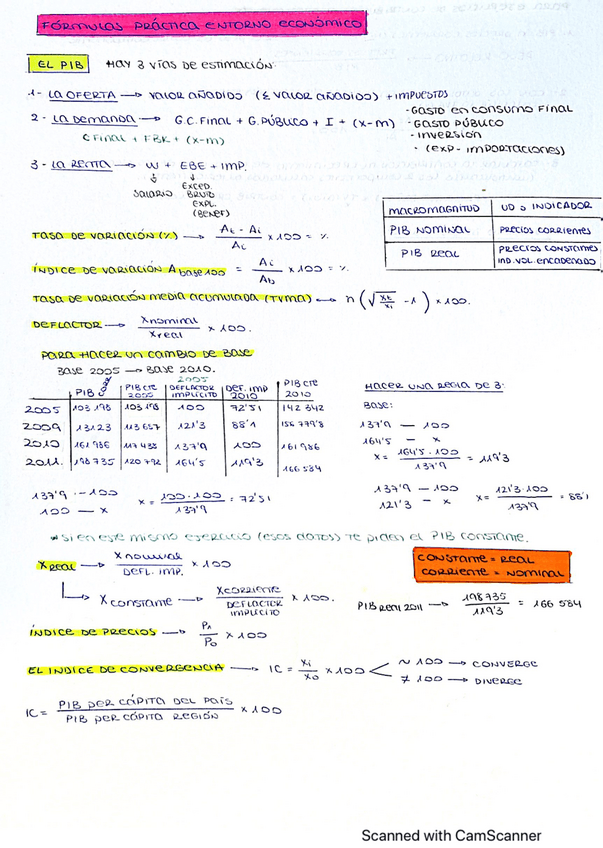 FÓRMULAS PRÁCTICA ENTORNO ECONÓMICO
EL PIB HAY 3 VÍAS DE ESTIMACIÓN:
1- LA OFERTA → VALOR AÑADIDOS (Σ VALOR AÑADIDOS) + IMPUESTOS
2- LA DEMANDA → G.C. FINAL + G. PÚBLICO + I + (X-M)
C FINAL + FBK + (X-M)
- GASTO EN CONSUMO FINAL
- GASTO PÚBLICO
- INVERSIÓN
- (EXP - IMPORTACIONES)
3- LA RENTA → W + EBE + IMP.
SALARIO EXCED. BRUTO EXPL. (BENEF)
MACROMAGNITUD UD o INDICADOR
PIB NOMINAL PRECIOS CORRIENTES
PIB REAL PRECIOS CONSTANTES IND. VOL. ENCADENADO
TASA DE VARIACIÓN (%) → At - Ai / Ai × 100 = %
ÍNDICE DE VARIACIÓN A base 100 = Ai / Ab × 100 = %
TASA DE VARIACIÓN MEDIA ACUMULADA (TVMA) → n(√Xt/Xi - 1) × 100.
DEFLACTOR → Xnominal / Xreal × 100.
PARA HACER UN CAMBIO DE BASE
BASE 2005 → BASE 2010.
PIB | PIB CTE 2005 | 2005 DEFLACTOR IMPLÍCITO | DEF. IMP 2010 | PIB CTE 2010
2005 | 103 198 | 103 198 | 100 | 72'51 | 142 342
2009 | 13123 | 113 657 | 121'3 | 88'1 | 156 779'8
2010 | 161 986 | 117 438 | 137'9 | 100 | 161 986
2011. | 198 735 | 120 792 | 164'5 | 119'3 | 166 584
HACER UNA REGLA DE 3:
BASE:
137'9 — 100
164'5 — x
x = 164'5 · 100 / 137'9 = 119'3
137'9 — 100
100 — x
x = 100 · 100 / 137'9 = 72'51
137'9 — 100
121'3 — x
x = 121'3 · 100 / 137'9 = 88'1
* SI EN ESTE MISMO EJERCICIO (ESOS DATOS) TE PIDEN EL PIB CONSTANTE.
X REAL → X nominal / DEFL. IMP. × 100
CONSTANTE = REAL
CORRIENTE = NOMINAL
X CONSTANTE → X CORRIENTE / DEFLACTOR IMPLÍCITO × 100.
PIB REAL 2011 → 198735 / 119'3 = 166 584
ÍNDICE DE PRECIOS → P1 / P0 × 100
EL INDICE DE CONVERGENCIA → IC = Xi / X0 × 100
~ 100 → CONVERGE
≠ 100 → DIVERGE
IC = PIB PER CÁPITA DEL PAÍS / PIB PER CÁPITA REGIÓN × 100
Scanned with CamScanner